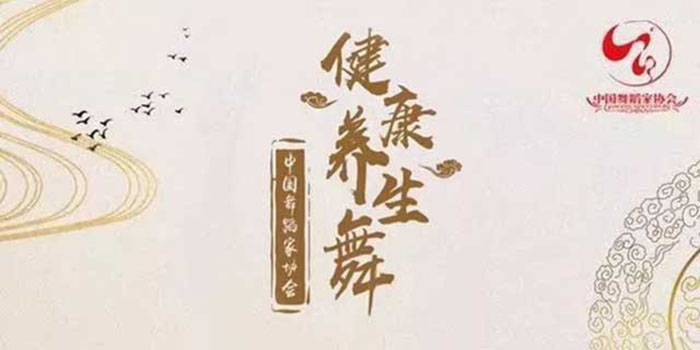 健康养生舞
中国舞蹈家协会
中国舞蹈家协会